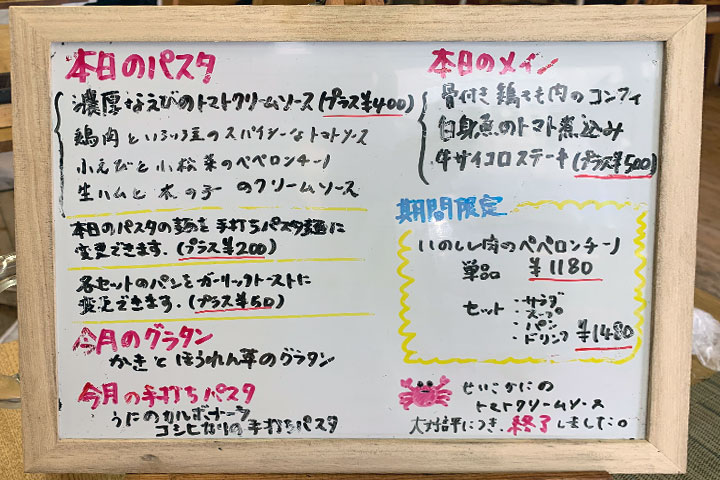 本日のパスタ
濃厚なえびのトマトクリームソース(プラス¥400)
鶏肉といろいろ豆のスパイシーなトマトソース
小えびと小松菜のペペロンチーノ
生ハムと木の子のクリームソース
本日のパスタの麺を手打ちパスタ麺に
変更できます.(プラス¥200)
各セットのパンをガーリックトーストに
変更できます.(プラス¥50)
今月のグラタン
かきとほうれん草のグラタン
今月の手打ちパスタ
うにのカルボナーラ
コシヒカリの手打ちパスタ
本日のメイン
骨付き鶏もも肉のコンフィ
白身魚のトマト煮込み
牛サイコロステーキ(プラス¥500)
期間限定
いのしし肉のペペロンチーノ
単品 ¥1180
セット ・サラダ
・スープ
・パン
・ドリンク ¥1480
せいこかにの
トマトクリームソース
大好評につき、終了しました。